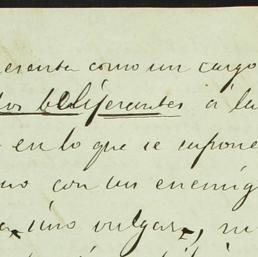 como un cargo
los beligerantes á la
en lo que se supone
con un enemig
sino vulgar,